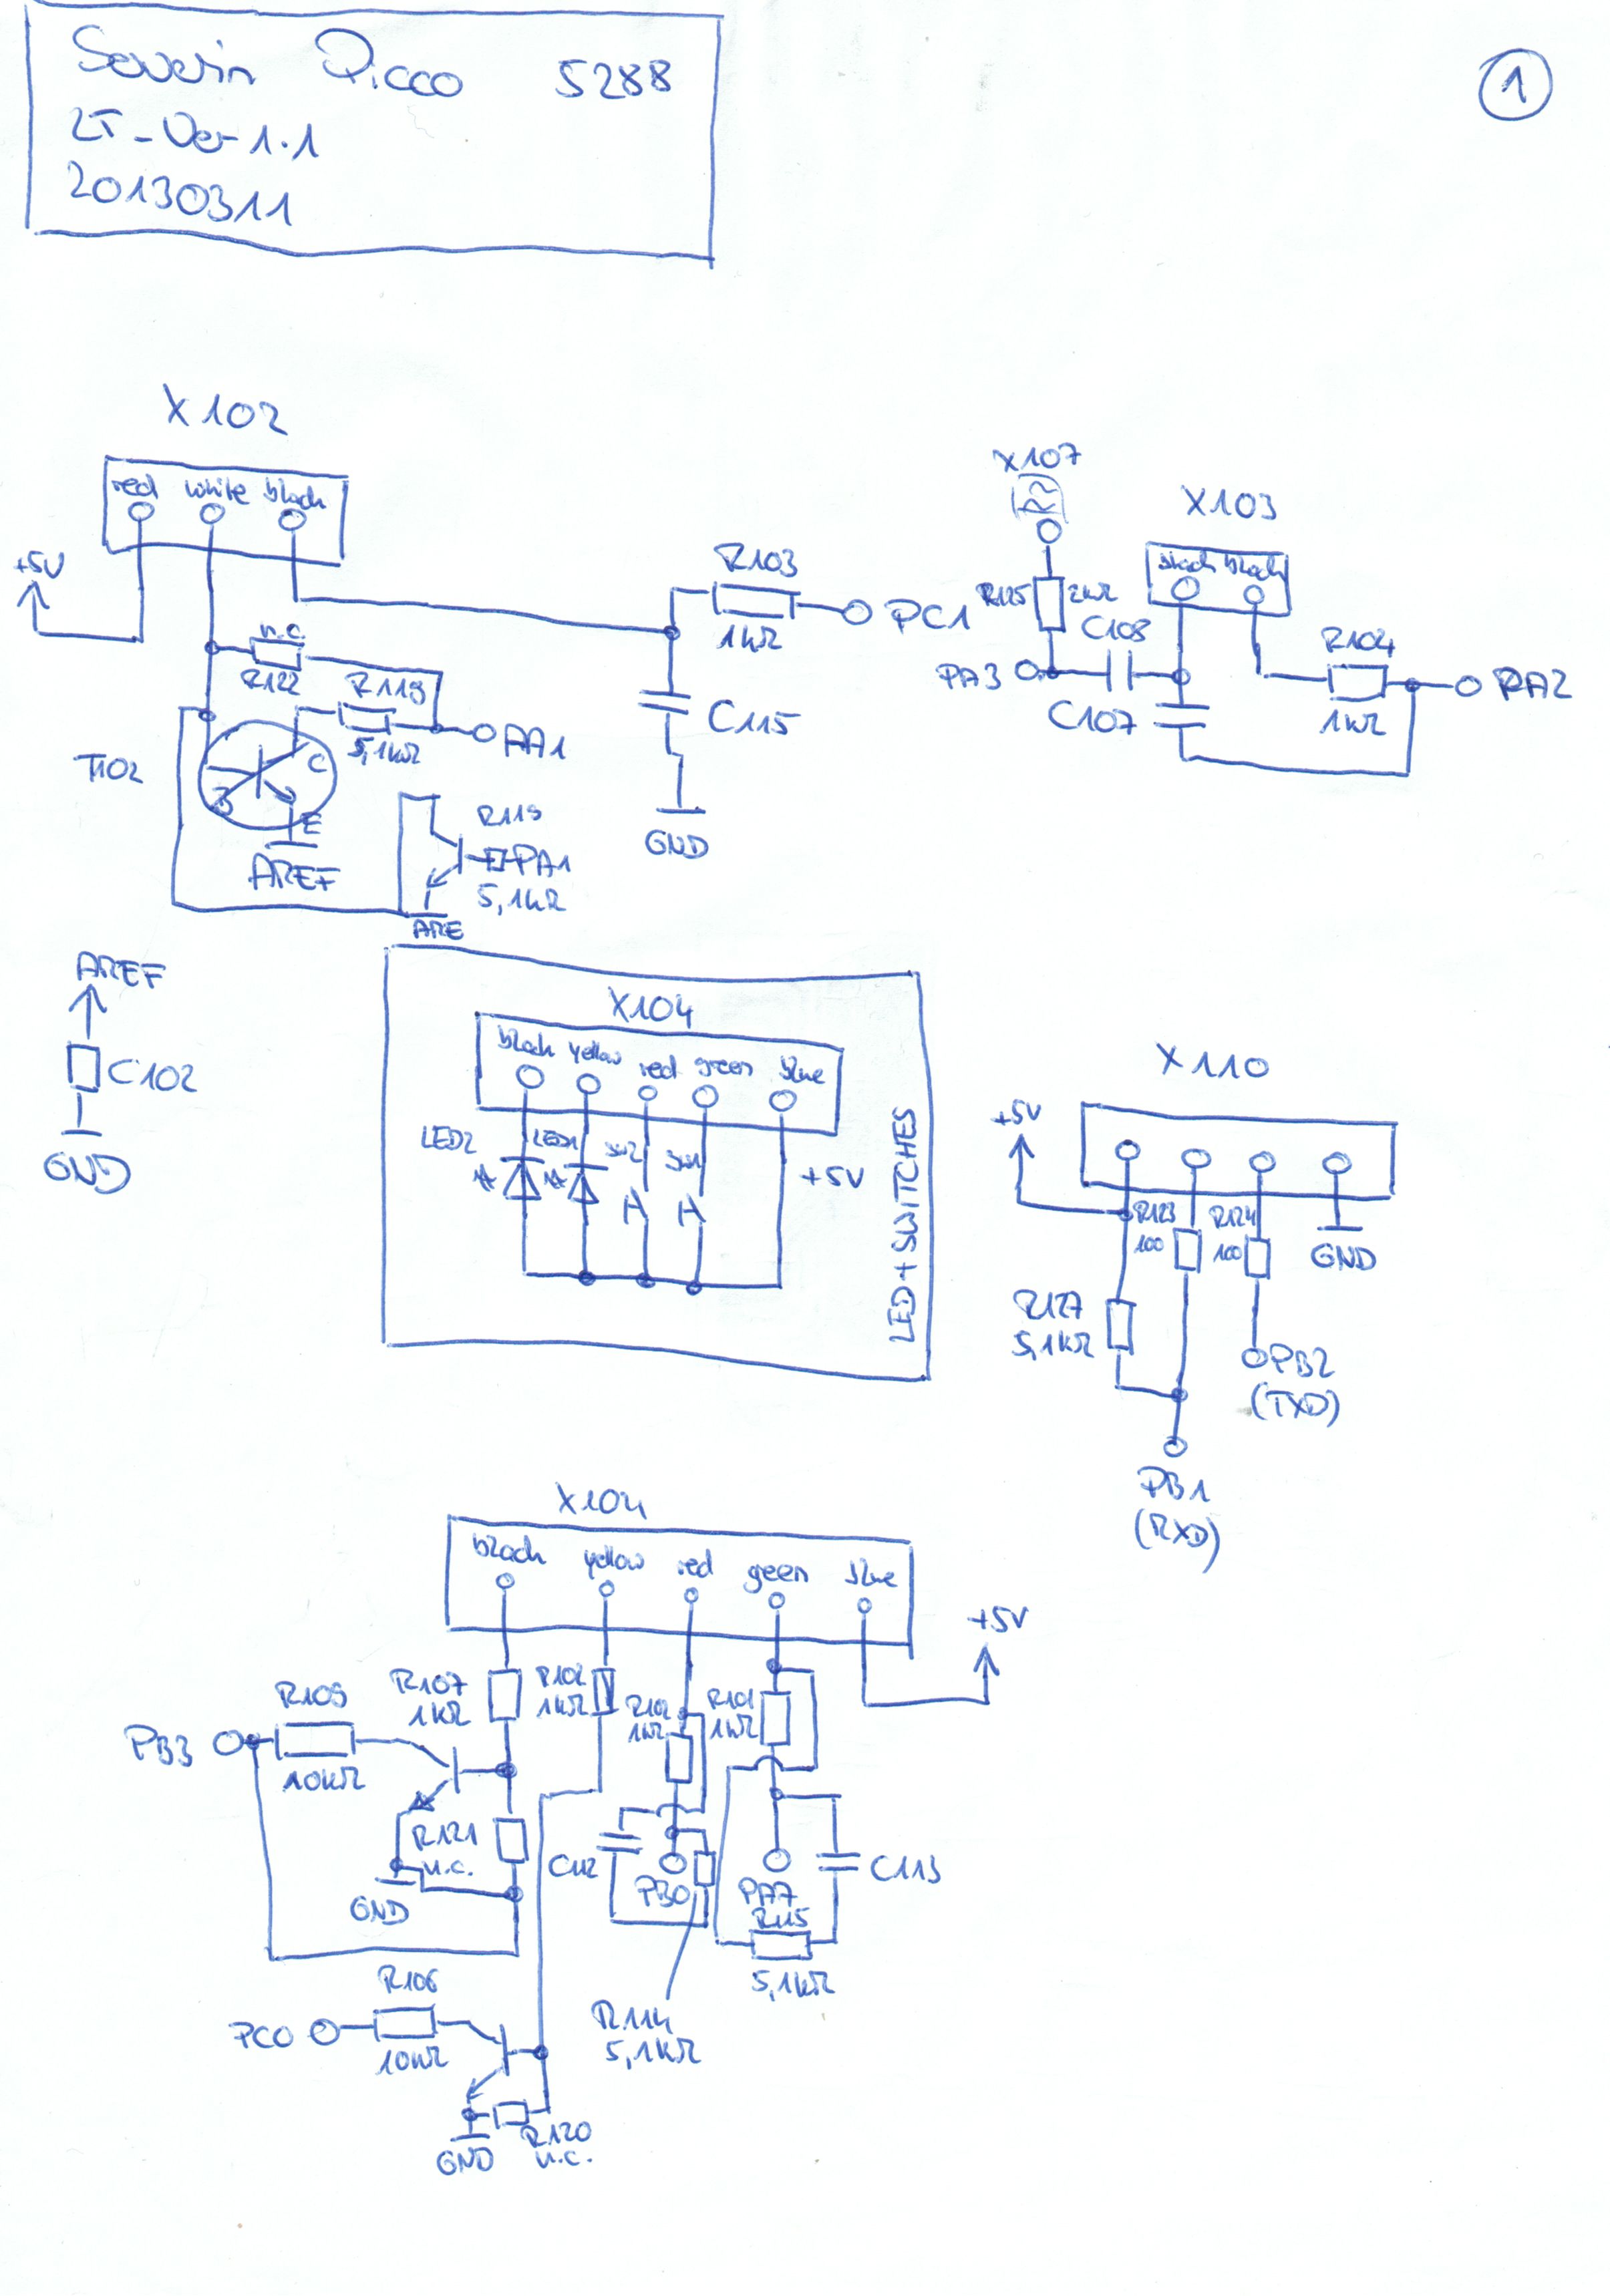 Severin Picco 5288
LT-Ver 1.1
20130311
1
X102
red white black
+5V
n.c.
R122
R119
5,1kΩ
PA1
T102
B
C
E
AREF
R119
PA1
5,1kΩ
ARE
R103
1kΩ
PC1
C115
GND
X107
R125 2kΩ
PA3
C108
C107
X103
black black
R104
1kΩ
PA2
AREF
C102
GND
X104
black yellow red green blue
LED2 LED1 SW2 SW1
+5V
LED + SWITCHES
X110
+5V
R123
100
R124
100
GND
R127
5,1kΩ
PB2
(TXD)
PB1
(RXD)
X104
black yellow red green blue
+5V
R107
1kΩ
1kΩ
1kΩ
R101
1kΩ
R109
PB3
10kΩ
R121
n.c.
GND
C112
PB0
PA7
C113
R115
5,1kΩ
R114
5,1kΩ
R106
PC0
10kΩ
R120
n.c.
GND